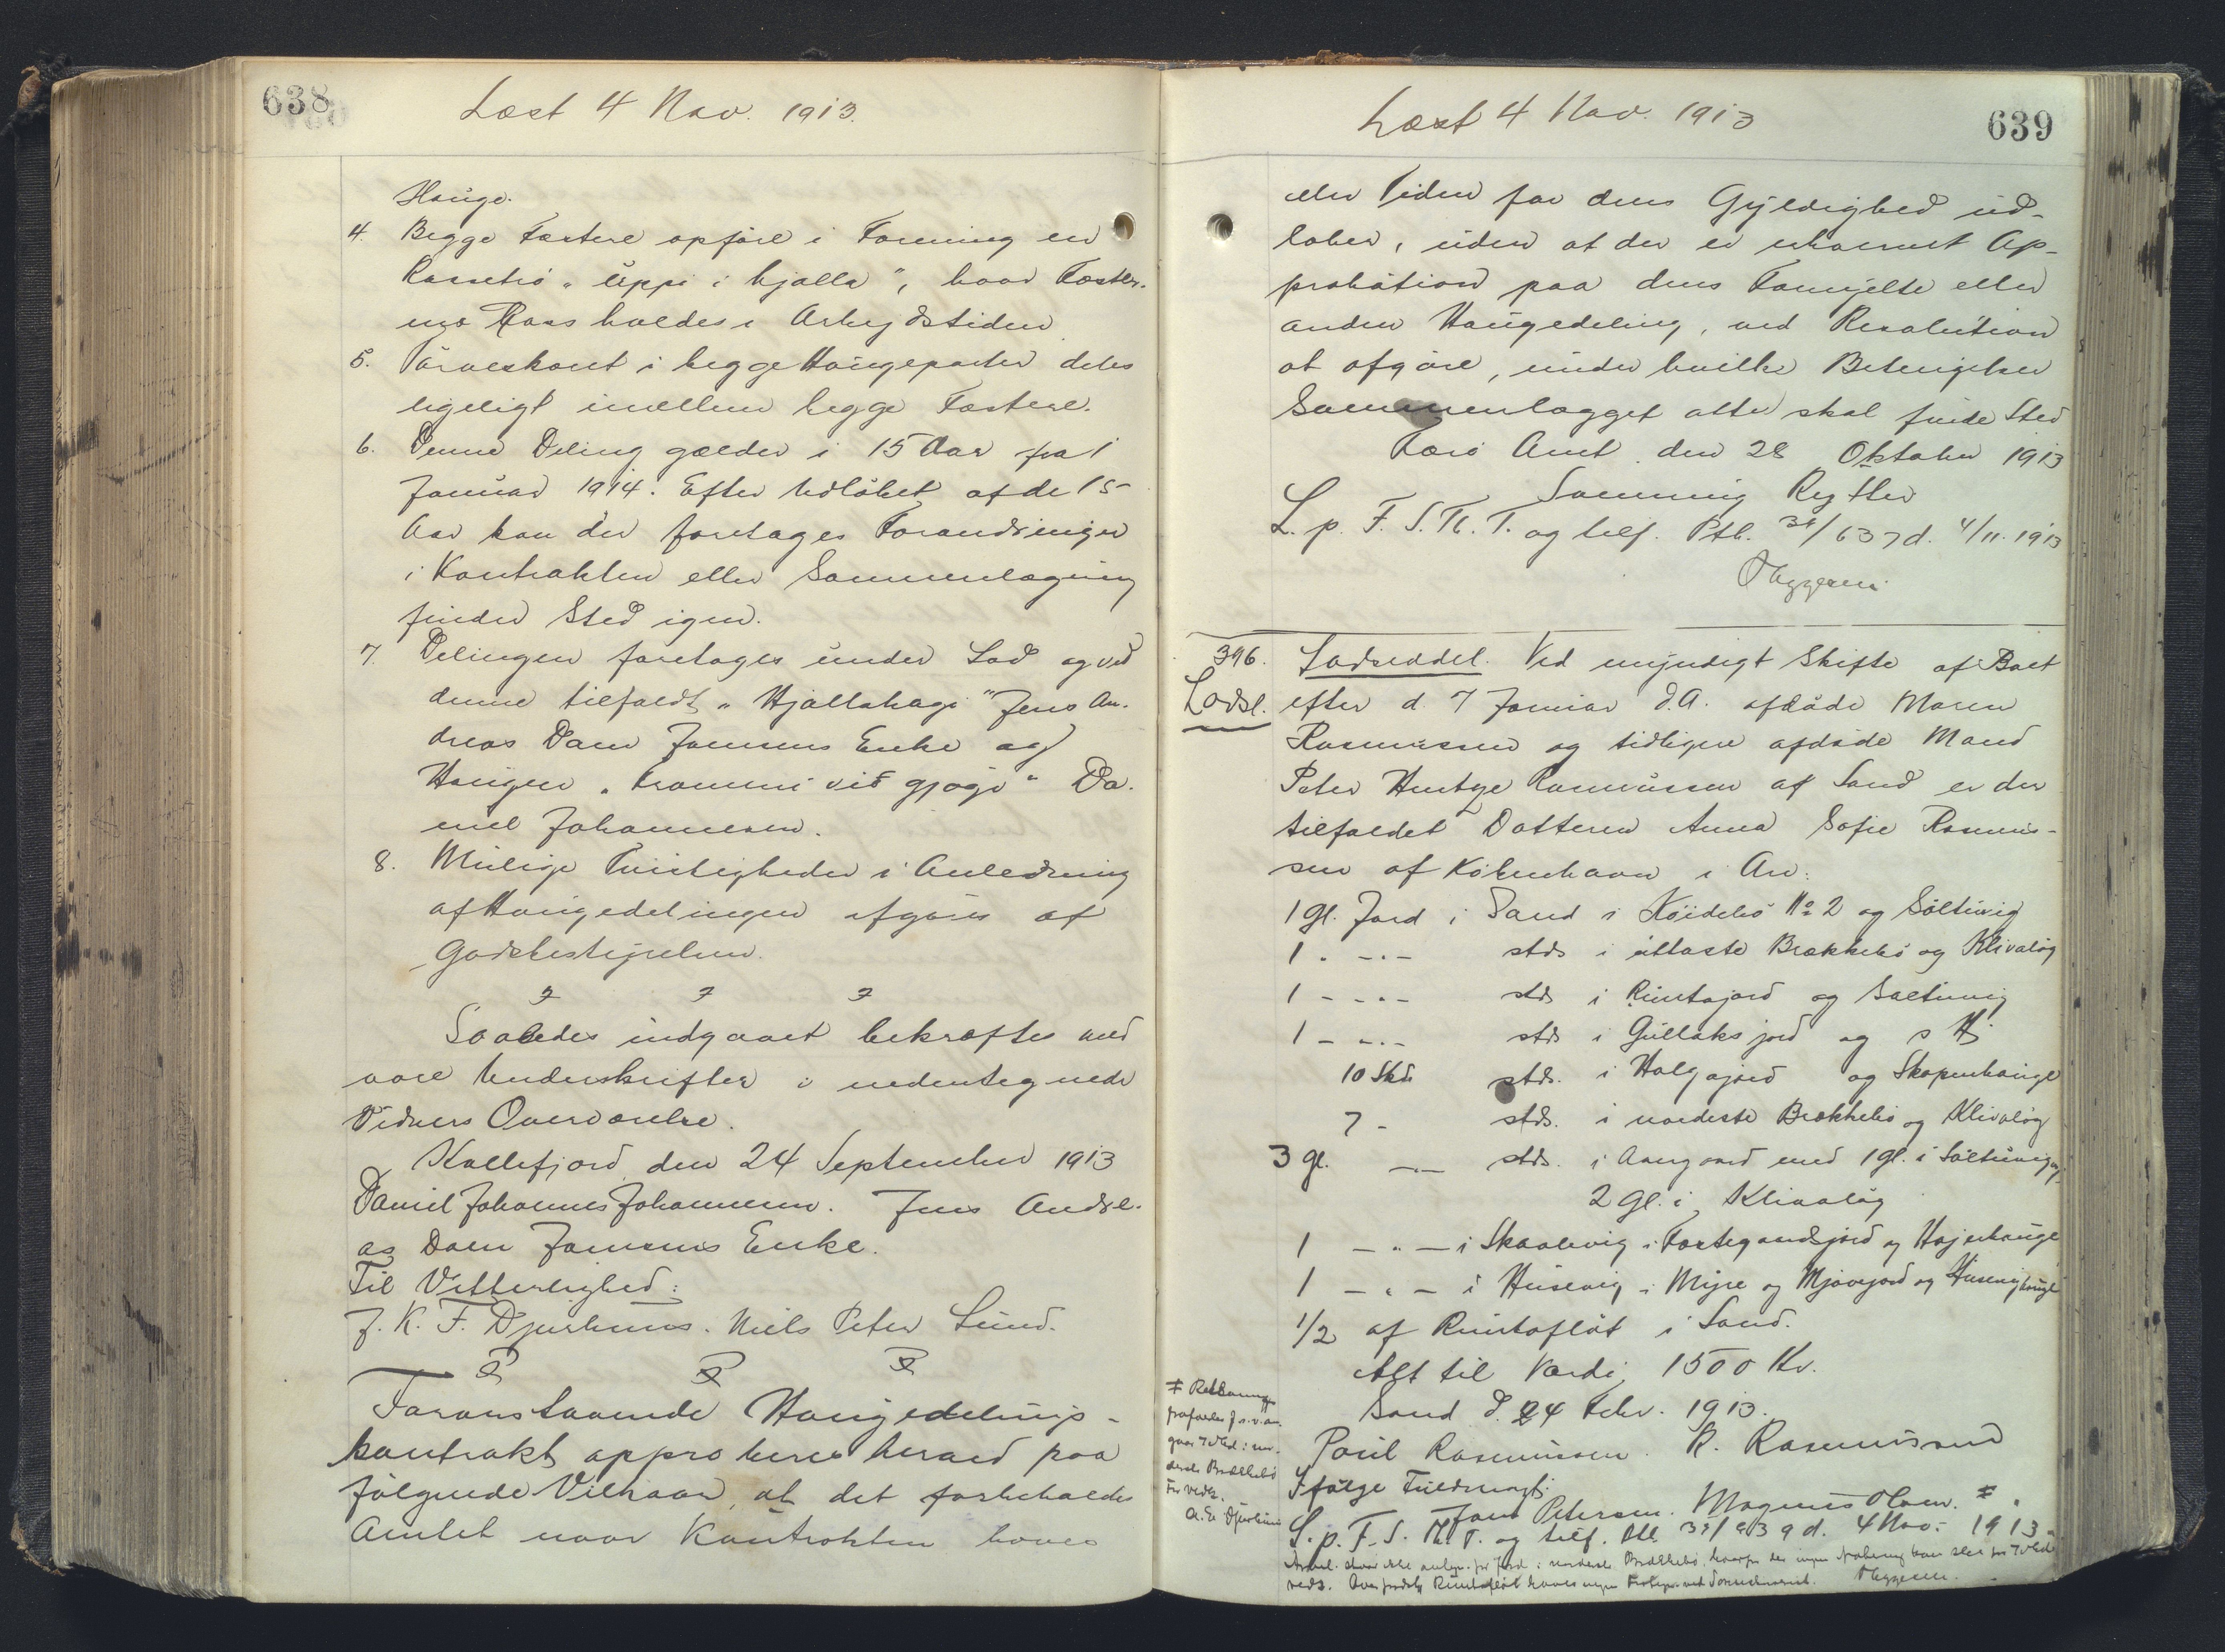 638
Læst 4 Nov. 1913.
Hauge.
4. Begge Fæstere opføre i Forening en
Rossebø "uppi i hjalla", hvor Fæster-
nes Ross holdes i Arbejdstiden
5. Tørveskaret i begge Haugeparter deles
ligeligt imellem begge Fæstere.
6. Denne Deling gælder i 15 Aar fra 1
Januar 1914. Efter Udløbet af de 15
Aar kan der foretages Forandringer
i Kontrakten eller Sammenlægning
finder Sted igen.
7. Delingen foretages under Lod og ved
denne tilfaldt "Hjallahagi" Jens An-
dreas Dam Jensens Enke og
Haugen "frammi við gjógv" Da-
niel Johannesen.
8. Mulige Tvistigheder i Anledning
af Haugedelingen afgøres af
Godsbestyrelsen.
Saaledes indgaaet bekræftes med
vore Underskrifter i undertegnede
Vidners Overværelse.
Kollefjord den 24 September 1913
Daniel Johannes Johannesen. Jens Andre-
as Dam Jensens Enke.
Til Vitterlighed:
J. K. F. Djurhuus. Niels Peter Lund.
Foranstaaende Haugedelings-
kontrakt approberes herved paa
følgende Vilkaar, at det forbeholdes
Amtet naar Kontrakten hæves
639
Læst 4 Nov. 1913
eller Tiden for dens Gyldighed ud-
løber, uden at der er erhvervet Ap-
probation paa dens Fornyelse eller
anden Haugedeling, ved Resolution
at afgøre, under hvilke Betingelser
Sammenlægget atter skal finde Sted
Færø Amt den 28 Oktober 1913
Svenning Rytter
L. p. F. S. Th. T. og tilf. Ptb. 637 d. 4/11. 1913
396. Lodseddel. Ved uvejudigt Skifte af Boet
Lodsl. efter d. 7 Januar d.A. afdøde Maren
Rasmussen og tidligere afdøde Mand
Peter Hentze Rasmussen af Sand er der
tilfaldet Datteren Anna Sofie Rasmus-
sen af København i Arv:
1 gl. Jord i Sand i Køidebø No 2 og Søltuvig
1 " - " - stds i úttaste Brekkebø og Klivaløg
1 - - " - stds i Runtajord og Søltuvig
1 - " - stds i Gullaksjord og s Hj
10 Skd. stds. i Holgajord og Skopunhauge
7 - stds. i nordeste Brekkebø og Klivaløg
3 gl. - " - stds. i Aargaard med 1 gl. i Søltuvig og
2 gl. i Klivaløg
1 - " - i Skaalevig i Fortegandsjord og Hajenhauge
1 - " - i Húsevig i Mýre og Mjávejord og Húsevighauge
1/2 af Runtafløt i Sand.
Alt til Værdi 1500 Kr.
Sand d. 24 Febr. 1913.
Poul Rasmussen. R. Rasmussen
Ifølge Fuldmagt:
Jens Petersen. Magnus Olsen. ǂ
L. p. F. S. Th. T. og tilf. Ptb. 639 d. 4 Nov. 1913